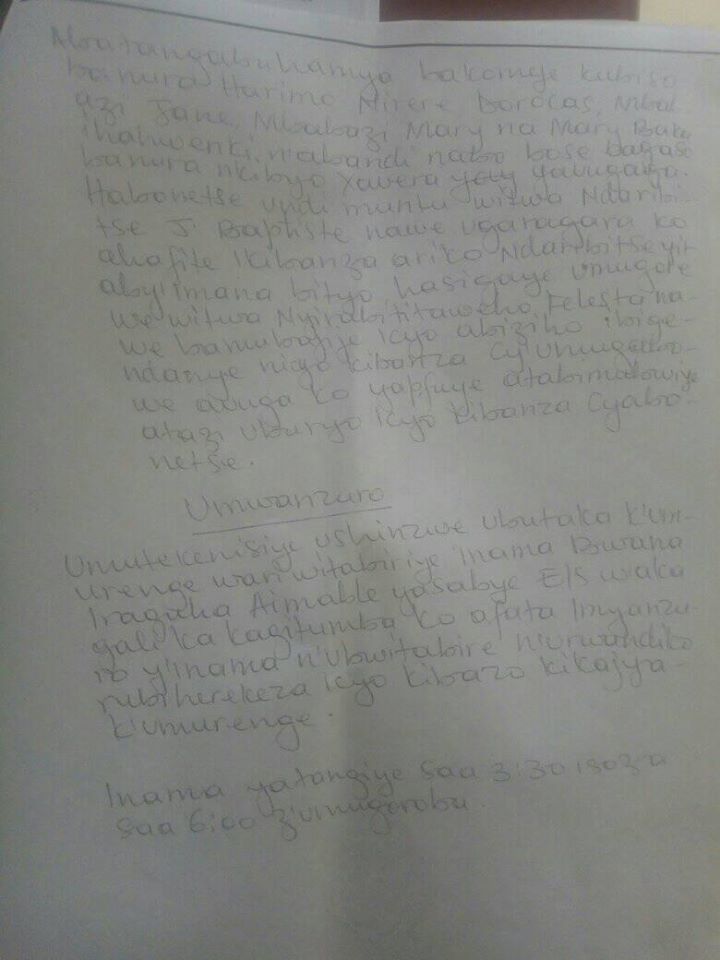 Abatangabuhamya bakomeje kubiso
banura Harimo Mirere Dorocas, Mbab-
azi Jane, Mbabazi Mary na Mary Baku
ihahwenki, n'abandi nabo bose bagaso
banura nkibyo Xavera yavugaga.
Habonetse undi muntu witwa Ndaribi-
tse J. Baptiste nawe ugaragara ko
ahafite ikibanza ariko Ndaribitse yit
aby'imana bityo hasigaye umugore
we witwa Nyirabititaweho Felesta na-
we bamubajije icyo abiziho ibige-
ndanye nicyo kibanza cy'umugabo-
we avuga ko yapfuye atabimubwiye
atazi uburyo icyo kibanza cyabo-
netse.
Umwanzuro
Umutekenisiye ushinzwe ubutaka k'um-
urenge wari witabiriye inama Bwana
Iraguha Aimable yasabye E/S w'aka
gali ka Kagitumba ko afata Imyanzu-
ro y'inama n'ubwitabire n'urwandiko
rubiherekeza icyo kibazo kikajya-
k'umurenge.
Inama yatangiye saa 3:30 isoza
saa 6:00 z'umugoroba.